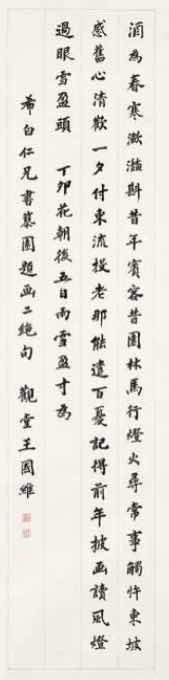 酒為春寒瀲灩斟昔年賓客昔園林馬行燈火尋常事觸忤東坡
感舊心清歡一夕付東流投老那能遣百憂記得前年披画讀風燈
過眼雪盈頭 丁卯花朝後五日雨雪盈寸為
希白仁兄書慕園題画二絕句 觀堂王國維